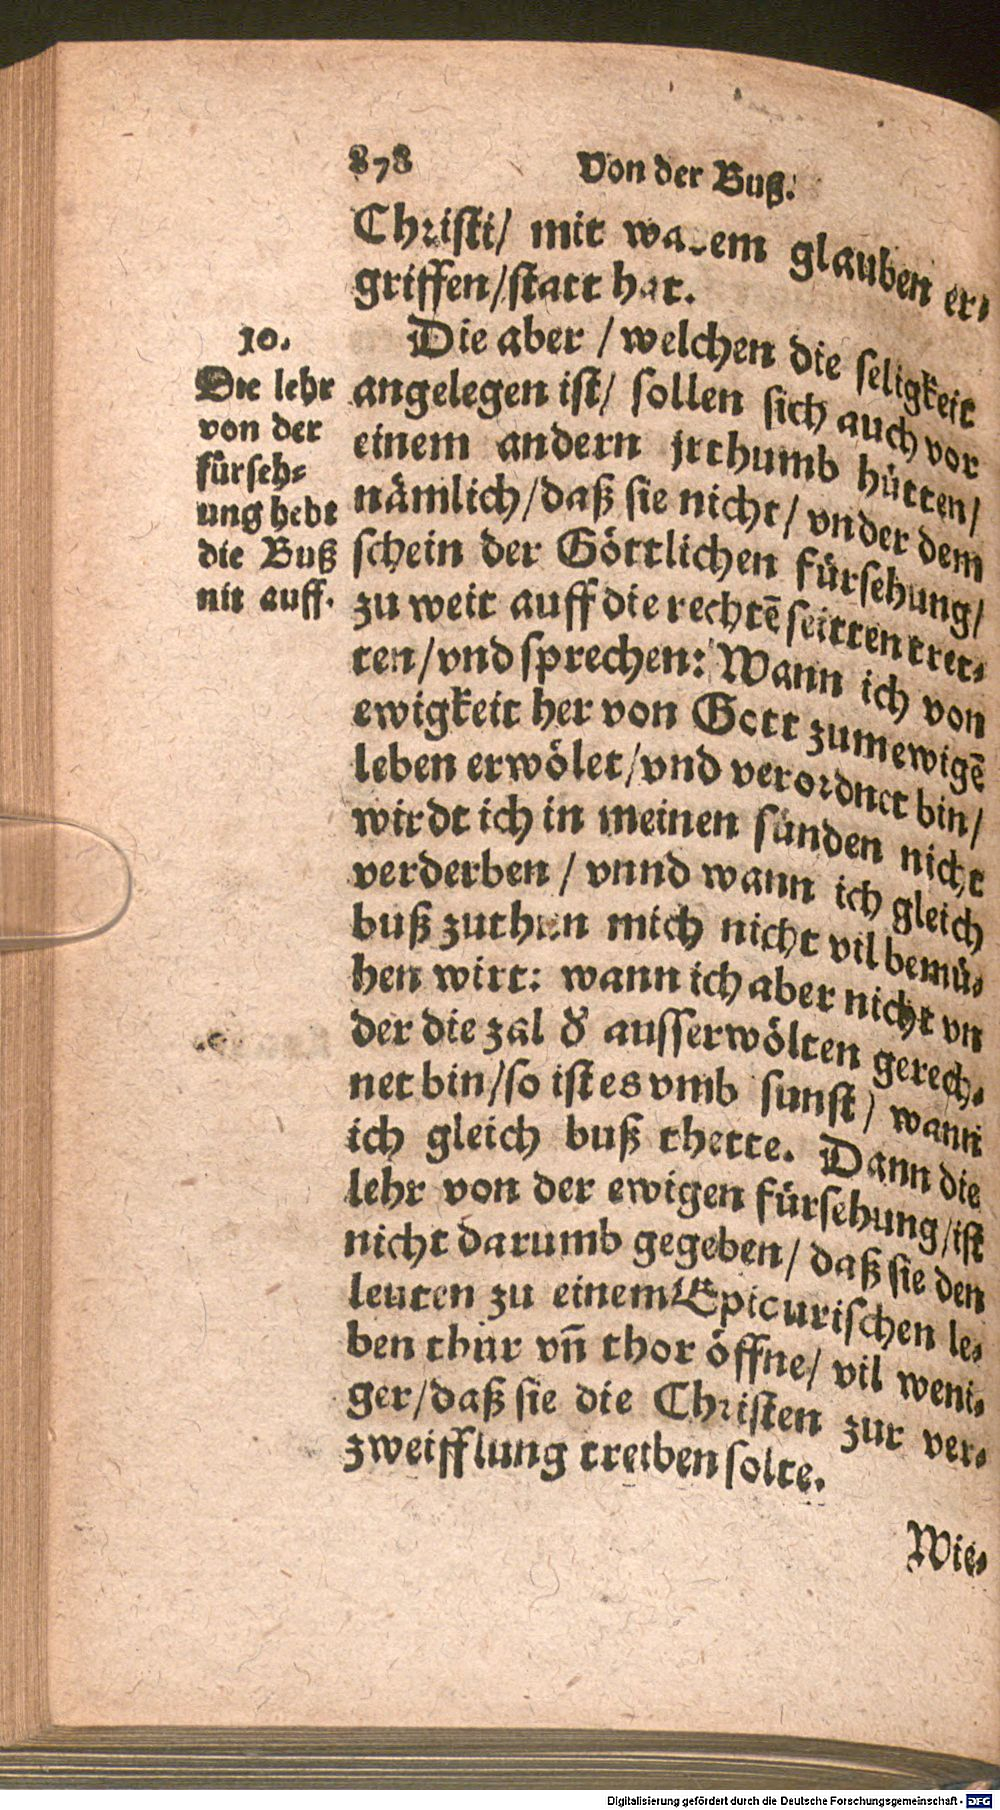 878 Von der Buß.
Christi/ mit warem glauben er-
griffen/statt hat.
10.
Die lehr
von der
fürseh-
ung hebt
die Buß
nit auff.
Die aber / welchen die seligkeit
angelegen ist/ sollen sich auch vor
einem andern jrthumb hütten/
nämlich/daß sie nicht/ vnder dem
schein der Göttlichen fürsehung/
zu weit auff die rechtē seitten tret-
ten/vnd sprechen: Wann ich von
ewigkeit her von Gott zum ewigē
leben erwölet/vnd verordnet bin/
wirdt ich in meinen sünden nicht
verderben / vnnd wann ich gleich
buß zuthun mich nicht vil bemü-
hen wirt: wann ich aber nicht vn
der die zal d' ausserwölten gerech-
net bin/so ist es vmb sunst/ wann
ich gleich buß thette. Dann die
lehr von der ewigen fürsehung/ist
nicht darumb gegeben/ daß sie den
leuten zu einem Epicurischen le-
ben thür vn̄ thor öffne/ vil weni-
ger/daß sie die Christen zur ver-
zweifflung treiben solte.
Wie-
Digitalisierung gefördert durch die Deutsche Forschungsgemeinschaft - DFG